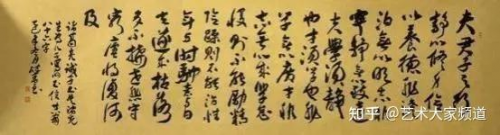 夫君子之行
静以修身俭
以养德非澹
泊无以明志非
宁静无以致远
夫学须静
也才须学也非
学无以广才非
志无以成学慆
慢则不能励精
险躁则不能治性
年与时驰意与日
去遂成枯落
多不接世悲守
穷庐将复何
及
八十六字
知乎 @艺术大家频道